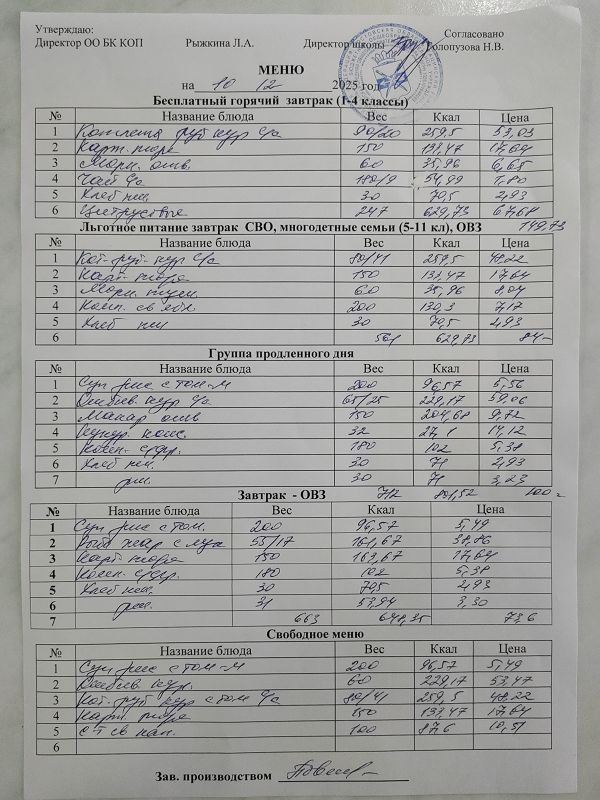 Утверждаю:
Согласовано
Директор ОО БК КОП Рыжкина Л.А. Директор школы Голопузова Н.В.
МЕНЮ
на 10 12 2025 год
Бесплатный горячий завтрак (1-4 классы)
№ Название блюда Вес Ккал Цена
1 Котлета руб кур с/с 90/20 259,5 53,03
2 Карт. пюре 150 133,47 17,64
3 Морк. отв. 60 35,96 6,65
4 Чай с/с 180/9 54,99 1,80
5 Хлеб пш. 30 70,5 2,93
6 Цитрусовые 247 629,73 67,68
149,73
Льготное питание завтрак СВО, многодетные семьи (5-11 кл), ОВЗ
№ Название блюда Вес Ккал Цена
1 Кот. руб. кур с/с 80/41 259,5 48,22
2 Карт. пюре 150 133,47 17,64
3 Морк. туш. 60 35,96 8,04
4 Комп. св ябл. 200 130,3 7,17
5 Хлеб пш 30 70,5 2,93
6 561 629,73 84-
Группа продленного дня
№ Название блюда Вес Ккал Цена
1 Суп рис с том-м 200 96,57 5,56
2 кур с/с 65/25 229,17 59,06
3 Макар отв 150 204,68 9,72
4 Кукур. конс. 32 27,1 14,12
5 Комп. с/фр. 180 102 5,38
6 Хлеб пш. 30 71 2,93
7 рж. 30 71 3,23
712 100=
Завтрак - ОВЗ
№ Название блюда Вес Ккал Цена
1 Суп рис с том. 200 96,57 5,49
2 Рыба жар с лук 55/17 161,67 38,86
3 Карт. пюре 150 163,67 17,64
4 Комп. с/фр. 180 102 5,38
5 Хлеб пш. 30 70,5 2,93
6 рж. 31 53,94 3,30
7 663 648,35 73,6
Свободное меню
№ Название блюда Вес Ккал Цена
1 Суп рис с том-м 200 96,57 5,49
2 кур. 60 229,17 53,47
3 Кот. руб кур с том с/с 80/41 259,5 48,22
4 Карт. пюре 150 133,47 17,64
5 с-т св кап. 100 87,6 10,51
6
Зав. производством